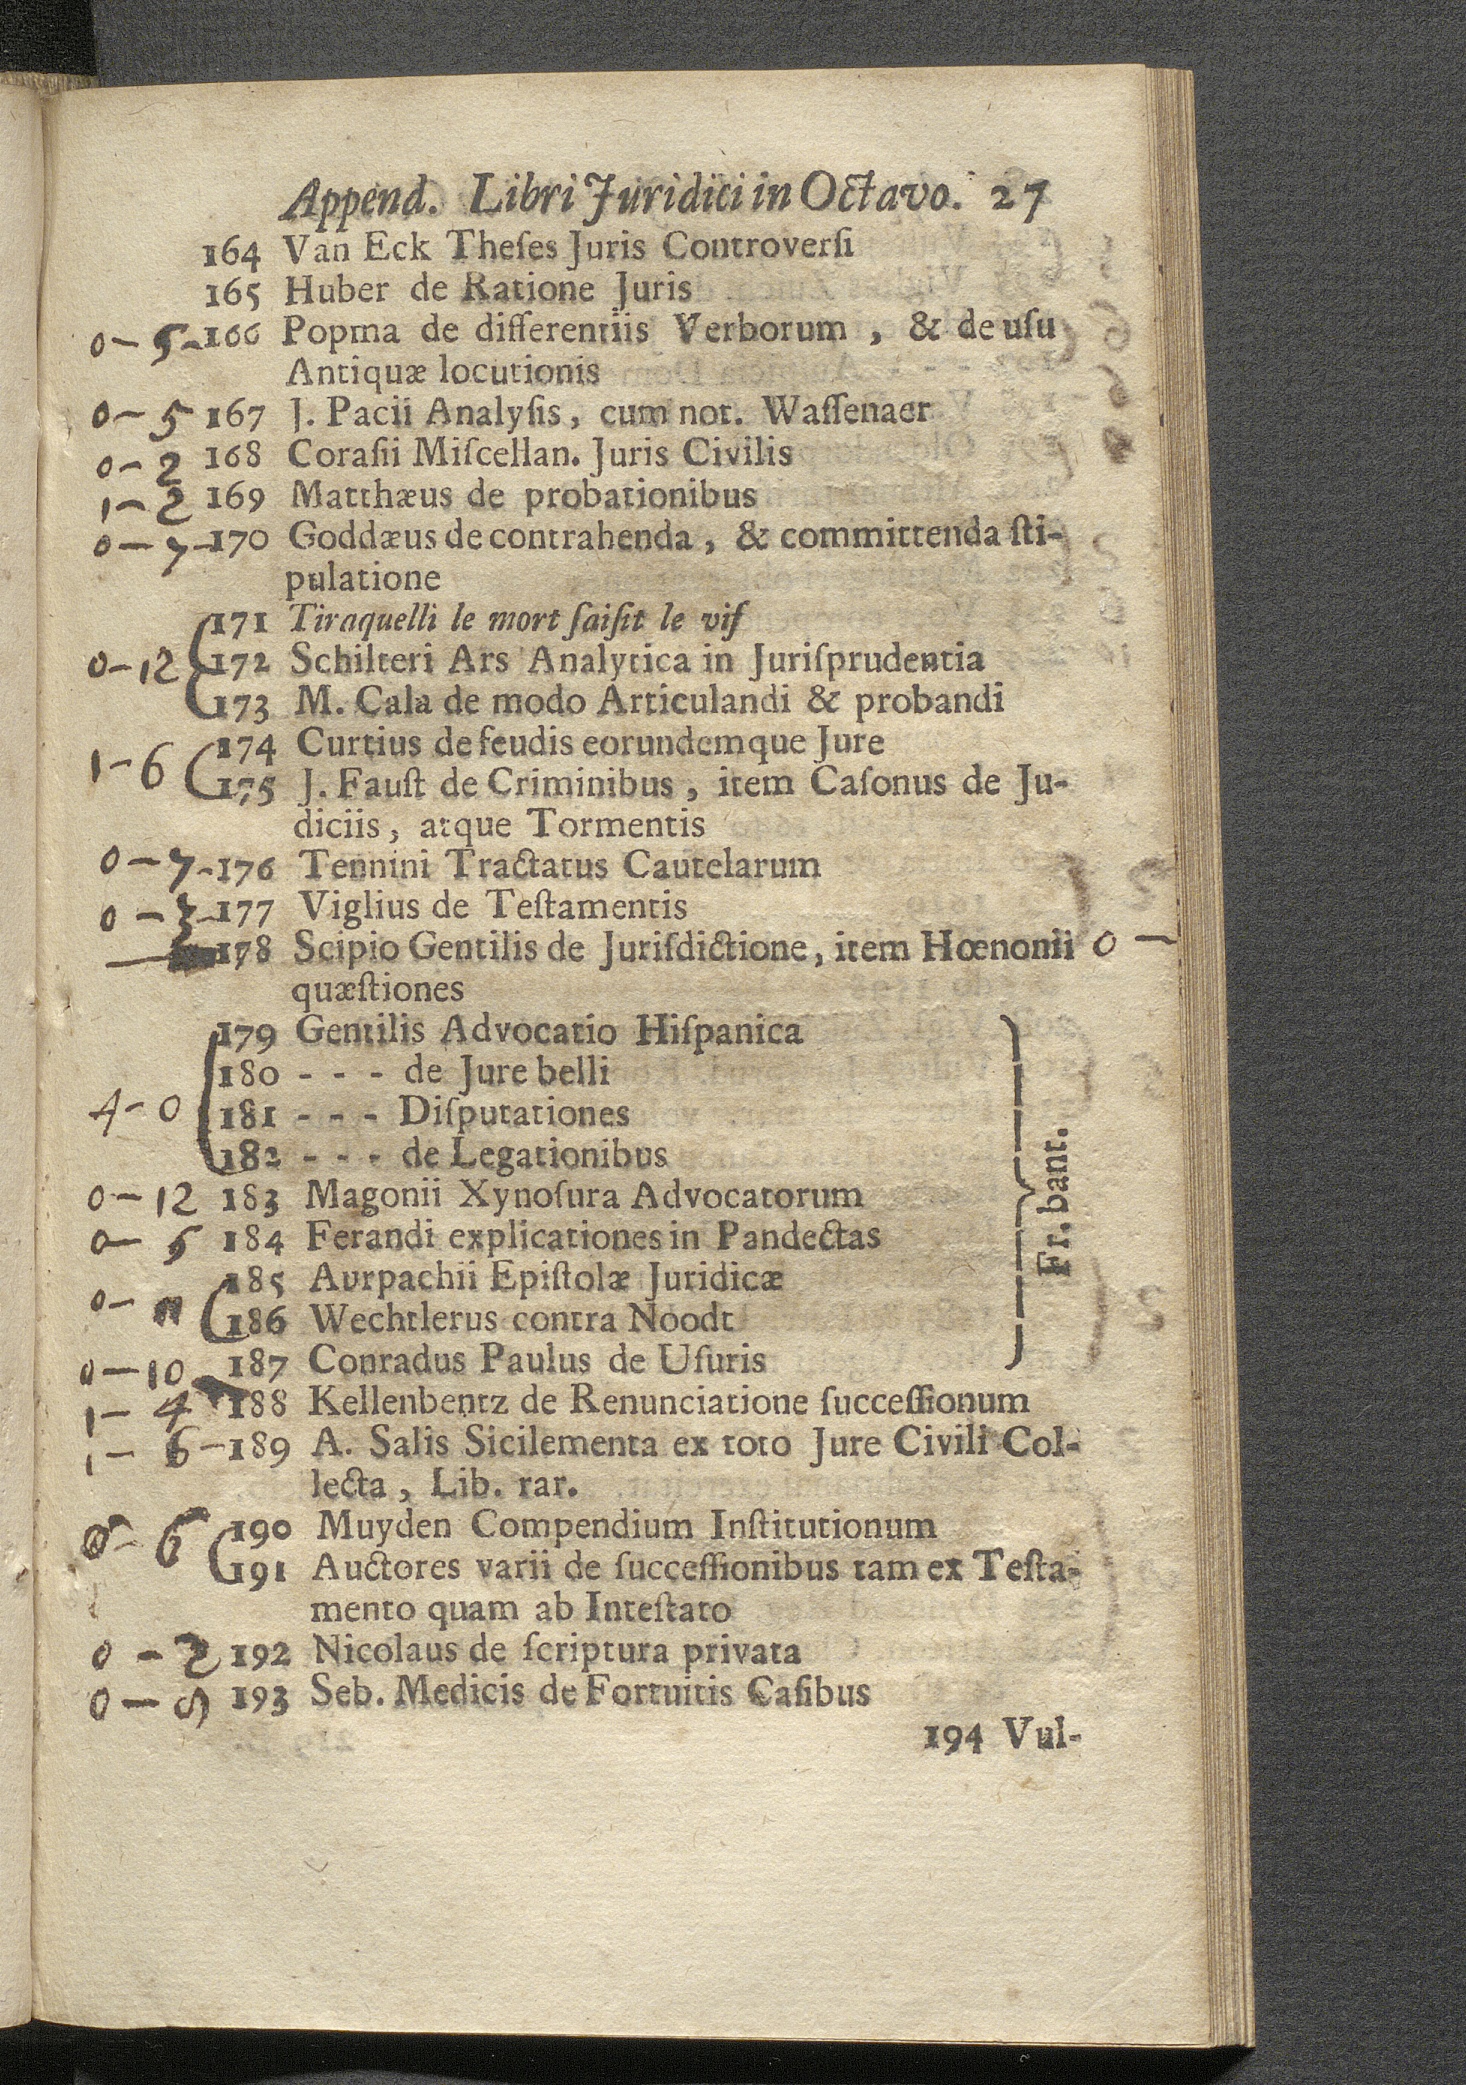 Append. Libri Juridici in Octavo. 27
164 Van Eck Theſes Juris Controverſi
165 Huber de Ratione Juris
0-5-166 Popma de differentiis Verborum, & de uſu
Antiquæ locutionis
0-5 167 J. Pacii Analyſis, cum not. Waſſenaer
0-2 168 Coraſii Miſcellan. Juris Civilis
1-2 169 Matthæus de probationibus
0-7-170 Goddæus de contrahenda, & committenda ſti-
pulatione
171 Tiraquelli le mort ſaiſit le vif
0-12 172 Schilteri Ars Analytica in Juriſprudentia
173 M. Cala de modo Articulandi & probandi
174 Curtius de feudis eorundemque Jure
1-6 175 J. Fauſt de Criminibus, item Caſonus de Ju-
diciis, atque Tormentis
0-7-176 Tennini Tractatus Cautelarum
0-3-177 Viglius de Teſtamentis
178 Scipio Gentilis de Juriſdictione, item Hœnonii 0 -
quæſtiones
179 Gentilis Advocatio Hiſpanica
180 - - - de Jure belli
4-0 181 - - - Diſputationes
182 - - - de Legationibus
Fr. bant.
0-12 183 Magonii Xynoſura Advocatorum
0-5 184 Ferandi explicationes in Pandectas
185 Aurpachii Epiſtolæ Juridicæ
0- 186 Wechtlerus contra Noodt
0-10 187 Conradus Paulus de Uſuris
1-4 188 Kellenbentz de Renunciatione ſucceſſionum
1-6-189 A. Salis Sicilementa ex toto Jure Civili Col-
lecta, Lib. rar.
0-6 190 Muyden Compendium Inſtitutionum
191 Auctores varii de ſucceſſionibus tam ex Teſta-
mento quam ab Inteſtato
0-2 192 Nicolaus de ſcriptura privata
0- 193 Seb. Medicis de Fortuitis Caſibus
194 Vul-